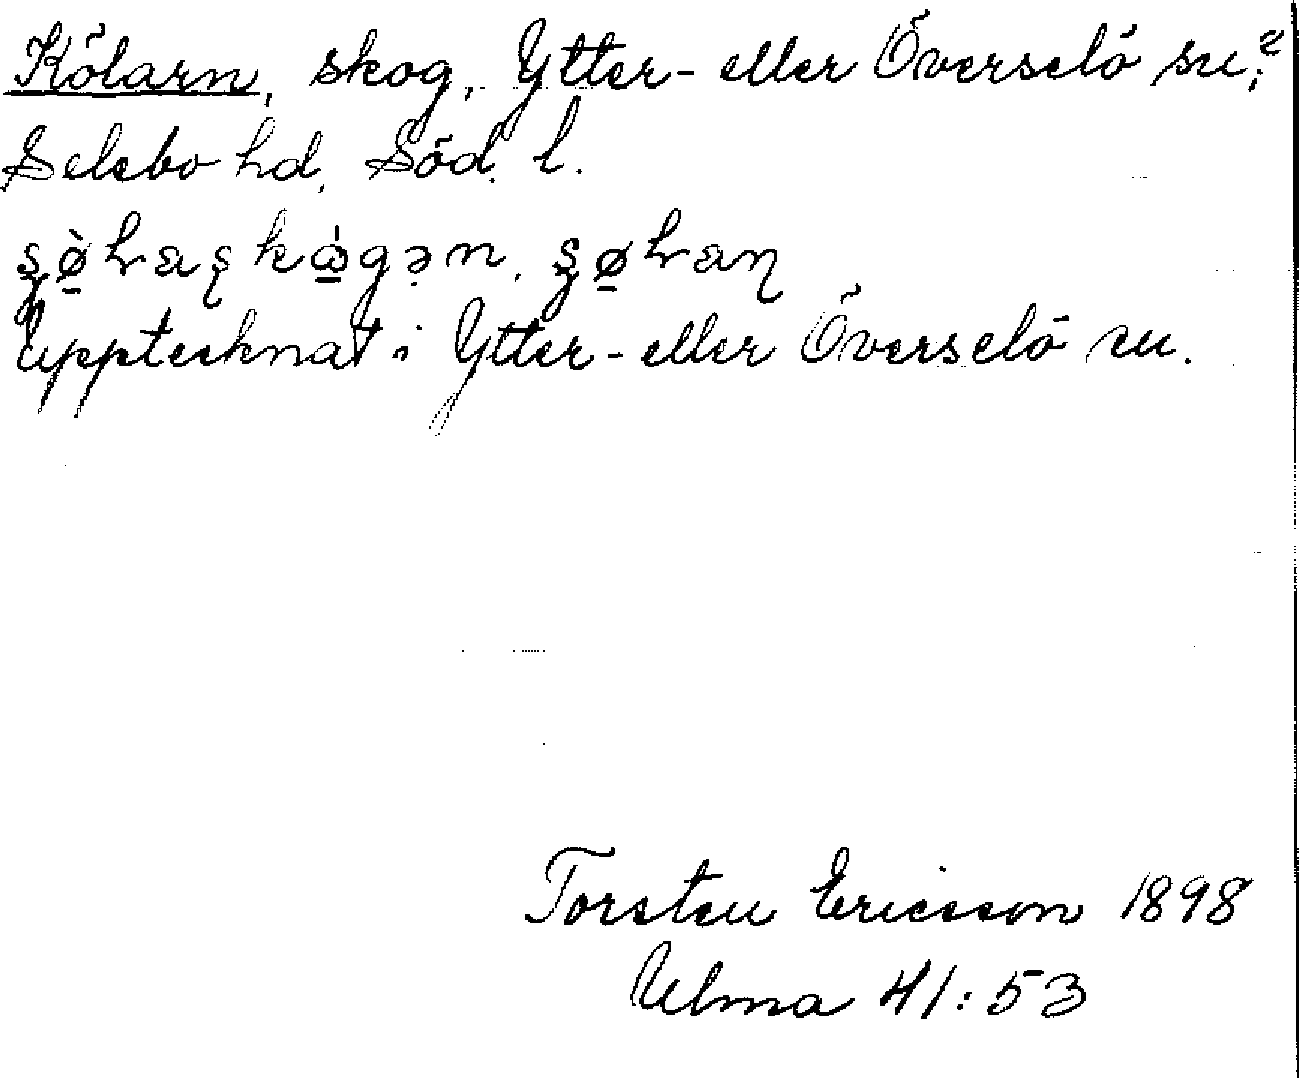 Kölarn, skog, Ytter- eller Överselö sn?
Selebo hd, Söd. l.
Upptecknat i Ytter- eller Överselö sn.
Torsten Ericsson 1898
Ulma 41:53